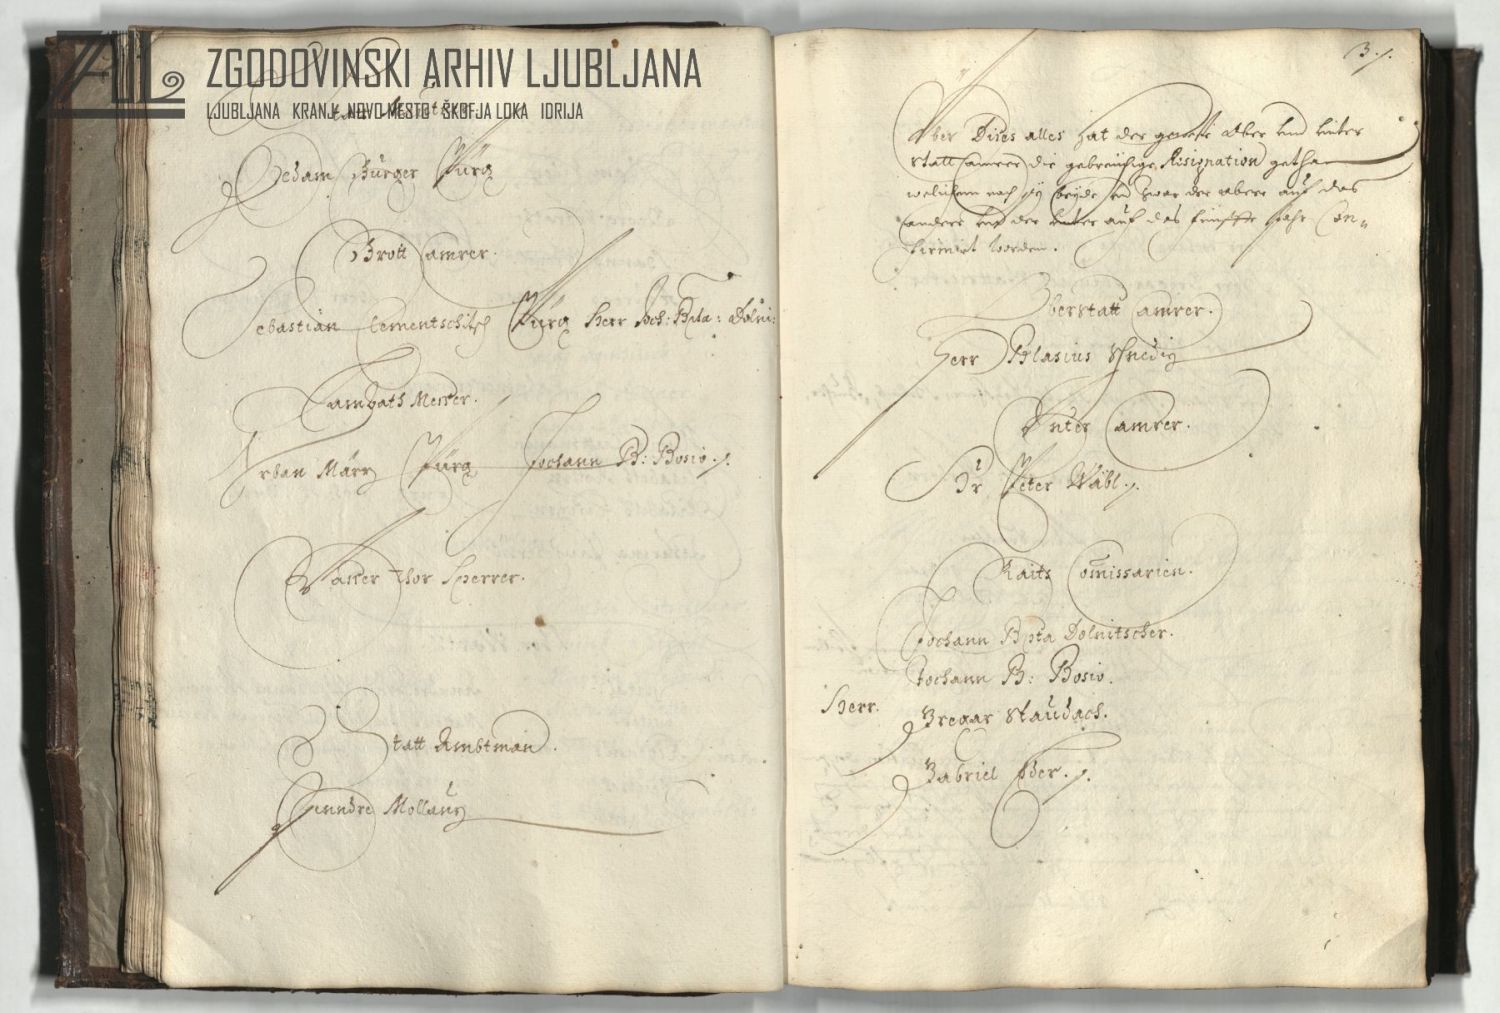 ZGODOVINSKI ARHIV LJUBLJANA
LJUBLJANA KRANJ NOVO MESTO ŠKOFJA LOKA IDRIJA
Bürger Pürg
Brott Camrer.
Sebastian Clementschitsch Pürg Herr Joh: Bpta: Dolni:
Urban Märn Pürg Johann B: Bosio
Wasser Thor Sperrer.
Statt Ambtman.
Andre Mollaun
3
Über Dises alles hat der geweste Ober und Unter
Statt Camrer die gebreüchige Resignation gethan
welichem nach sy beyde und zwar der obere auf das
andere und der unter auf das fünffte Jahr Con-
firmirt worden.
Oberstatt Camrer.
Herr Blasius Schnediz
Unter Camrer.
Hr Peter Wäbl
Raits Comissarien.
Johann Bpta Dolnitscher.
Johann B: Bosio.
Herr.
Gregor Staudach.
Gabriel Eder.